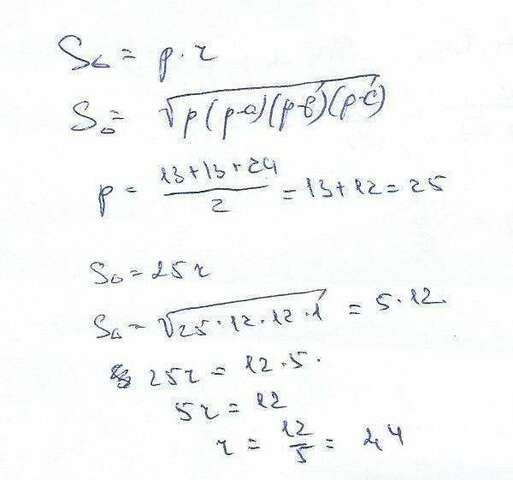 S△ = p · r
S△ = √p(p-a)(p-b)(p-c)
p = (13+13+24)/2 = 13+12 = 25
S△ = 25r
S△ = √25·12·12·1 = 5·12.
25r = 12·5.
5r = 12
r = 12/5 = 2,4